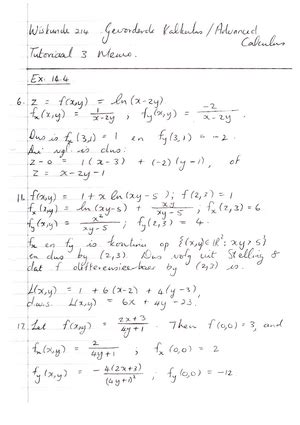 Wiskunde 214 Gevorderde Kalkulus / Advanced
Calculus
Tutoriaal 3 Memo.
Ex. 14.4
6. z = f(x,y) = ln(x-2y)
f_x(x,y) = 1/(x-2y), f_y(x,y) = -2/(x-2y).
Dus is f_x(3,1) = 1 en f_y(3,1) = -2.
vgl is dus:
z-0 = 1(x-3) + (-2)(y-1), of
z = x-2y-1
11. f(x,y) = 1 + x ln(xy-5); f(2,3) = 1
f_x(x,y) = ln(xy-5) + xy/(xy-5), f_x(2,3) = 6
f_y(x,y) = x²/(xy-5); f_y(2,3) = 4.
f_x en f_y is kontinu op {(x,y)∈ℝ²: xy>5}
en dus by (2,3). Dus volg uit Stelling 8
dat f differensieerbaar by (2,3) is.
L(x,y) = 1 + 6(x-2) + 4(y-3),
d.w.s. L(x,y) = 6x + 4y - 23.
12. Let f(x,y) = (2x+3)/(4y+1). Then f(0,0) = 3, and
f_x(x,y) = 2/(4y+1), f_x(0,0) = 2
f_y(x,y) = -4(2x+3)/(4y+1)²; f_y(0,0) = -12